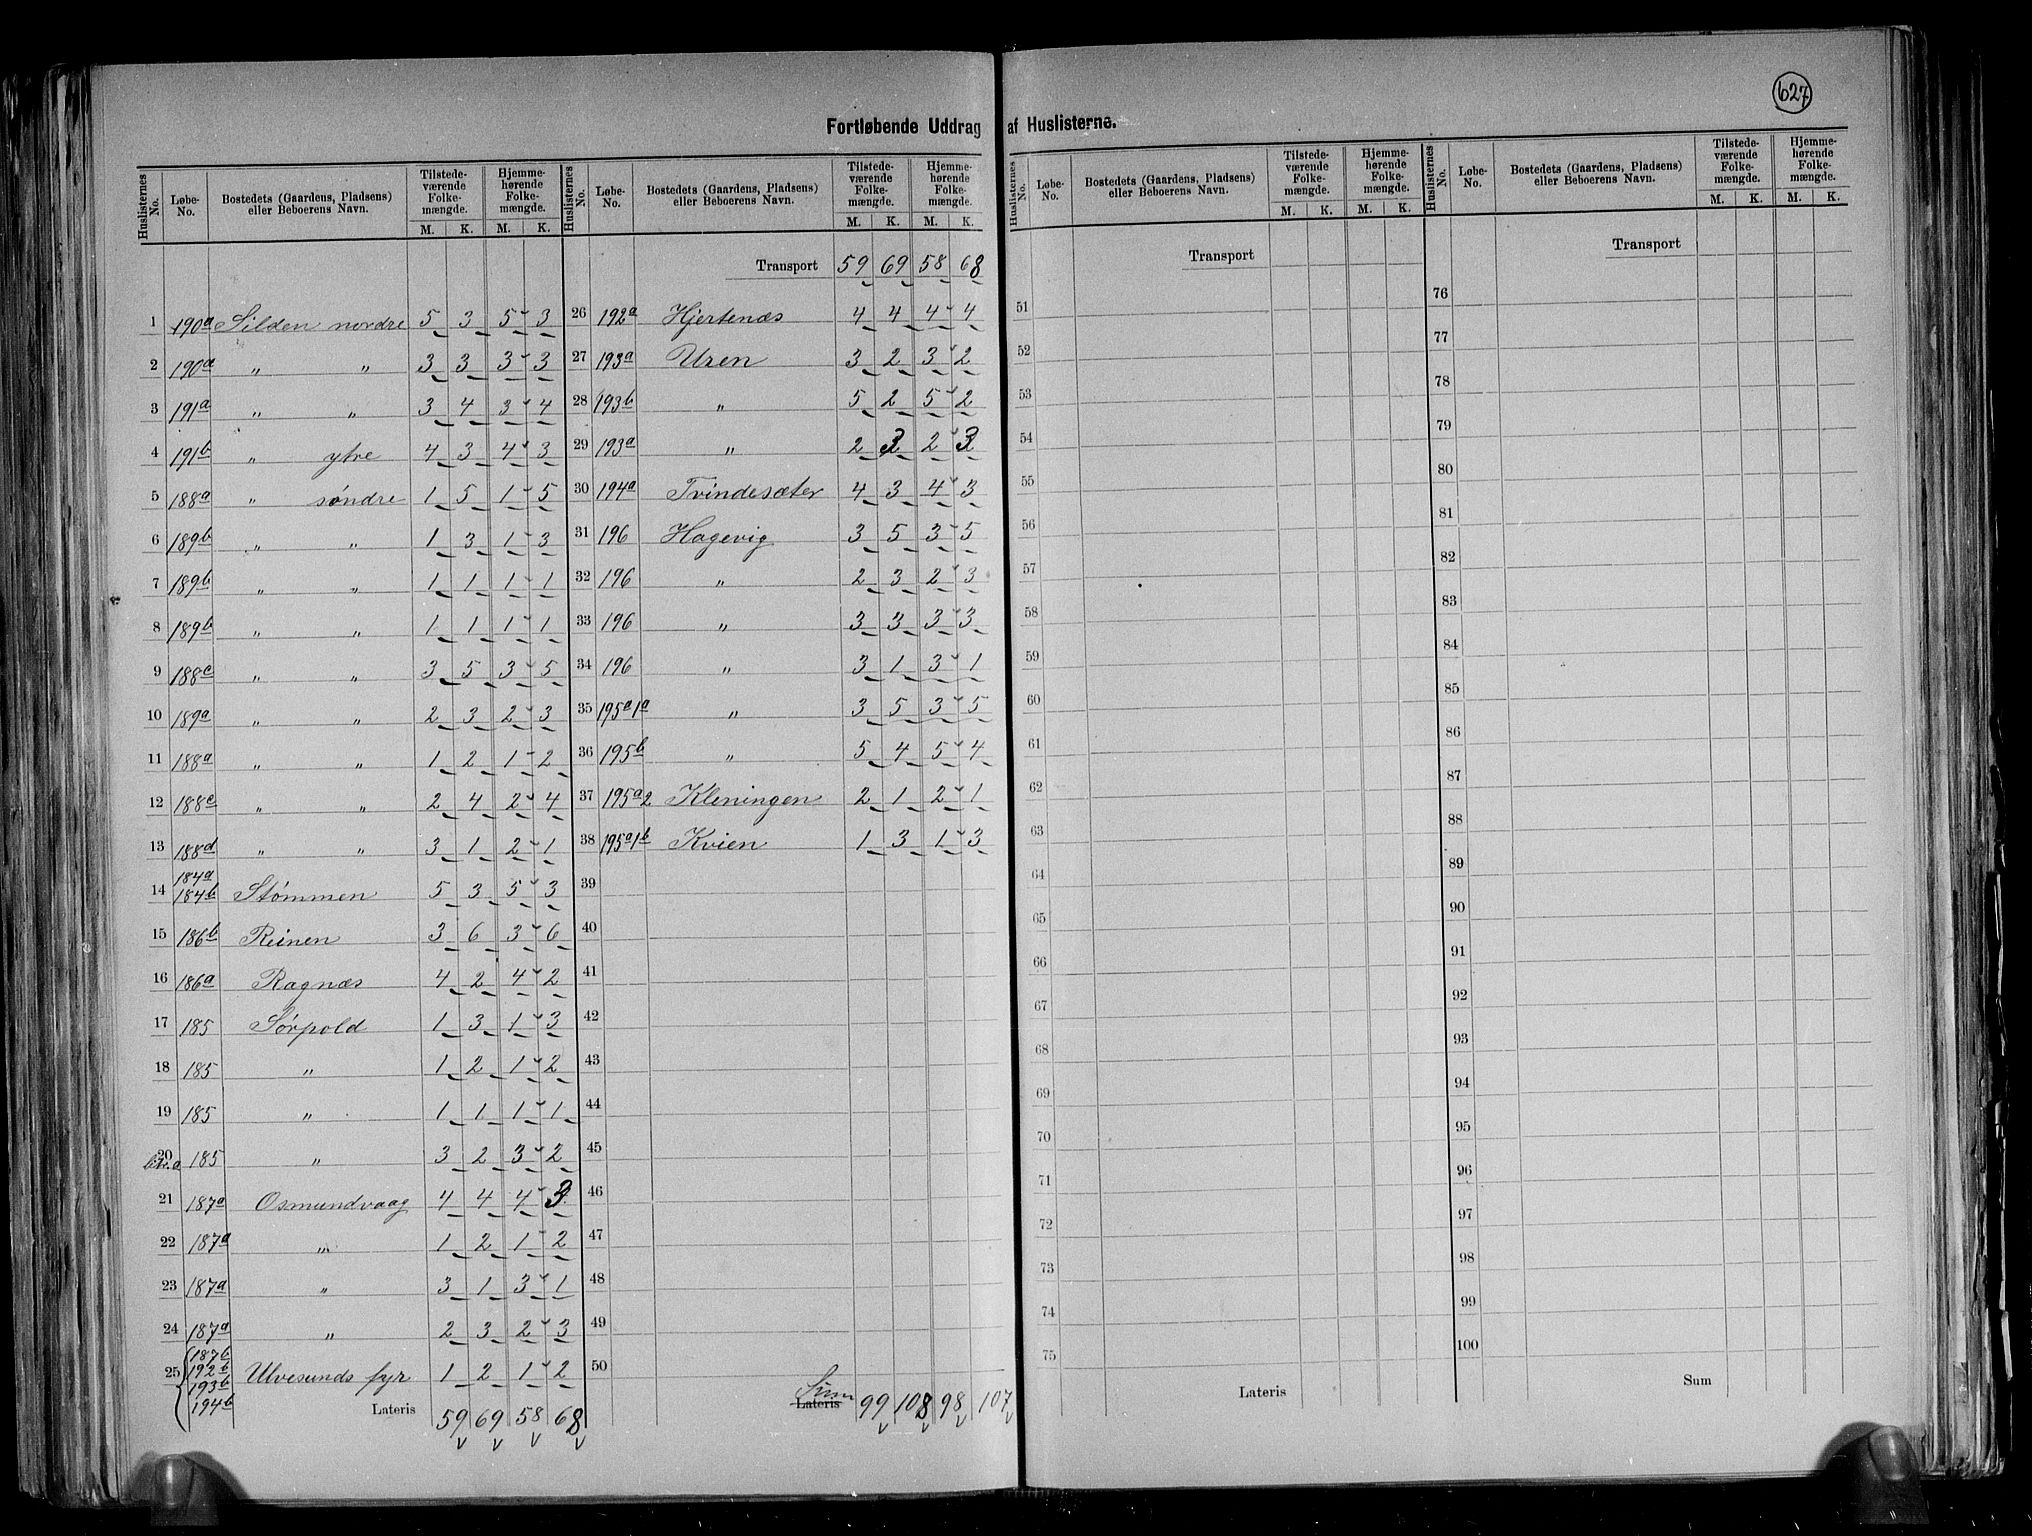 627
Fortløbende Uddrag af Huslisterne.
Huslisternes No. | Løbe-No. | Bostedets (Gaardens, Pladsens) eller Beboerens Navn. | Tilstede-værende Folke-mængde. M. K. | Hjemme-hørende Folke-mængde. M. K.
1 190a Silden nordre 5 3 5 3
2 190a " " 3 3 3 3
3 191a " " 3 4 3 4
4 191b " ytre 4 3 4 3
5 188a " søndre 1 5 1 5
6 189b " " 1 3 1 3
7 189b " " 1 1 1 1
8 189b " " 1 1 1 1
9 188c " " 3 5 3 5
10 189a " " 2 3 2 3
11 188a " " 1 2 1 2
12 188c " " 2 4 2 4
13 188d " " 3 1 2 1
14 184a 184b Stømmen 5 3 5 3
15 186b Reinen 3 6 3 6
16 186a Ragnæs 4 2 4 2
17 185 Sørpold 1 3 1 3
18 185 " 1 2 1 2
19 185 " 1 1 1 1
20 185 " 3 2 3 2
21 187a Osmundvaag 4 4 4 3
22 187a " 1 2 1 2
23 187a " 3 1 3 1
24 187a " 2 3 2 3
25 187b 192b 193b 194b Ulvesunds fyr 1 2 1 2
Lateris 59 69 58 68
Huslisternes No. | Løbe-No. | Bostedets (Gaardens, Pladsens) eller Beboerens Navn. | Tilstede-værende Folke-mængde. M. K. | Hjemme-hørende Folke-mængde. M. K.
Transport 59 69 58 68
26 192a Hjertenæs 4 4 4 4
27 193a Uren 3 2 3 2
28 193b " 5 2 5 2
29 193a " 2 3 2 3
30 194a Tvindesæter 4 3 4 3
31 196 Hagevig 3 5 3 5
32 196 " 2 3 2 3
33 196 " 3 3 3 3
34 196 " 3 1 3 1
35 195a1a " 3 5 3 5
36 195b " 5 4 5 4
37 195a2 Kleningen 2 1 2 1
38 195a1b Kvien 1 3 1 3
39
40
41
42
43
44
45
46
47
48
49
50
Sum Lateris 99 108 98 107
Huslisternes No. | Løbe-No. | Bostedets (Gaardens, Pladsens) eller Beboerens Navn. | Tilstede-værende Folke-mængde. M. K. | Hjemme-hørende Folke-mængde. M. K.
Transport
51
52
53
54
55
56
57
58
59
60
61
62
63
64
65
66
67
68
69
70
71
72
73
74
75
Lateris
Huslisternes No. | Løbe-No. | Bostedets (Gaardens, Pladsens) eller Beboerens Navn. | Tilstede-værende Folke-mængde. M. K. | Hjemme-hørende Folke-mængde. M. K.
Transport
76
77
78
79
80
81
82
83
84
85
86
87
88
89
90
91
92
93
94
95
96
97
98
99
100
Sum